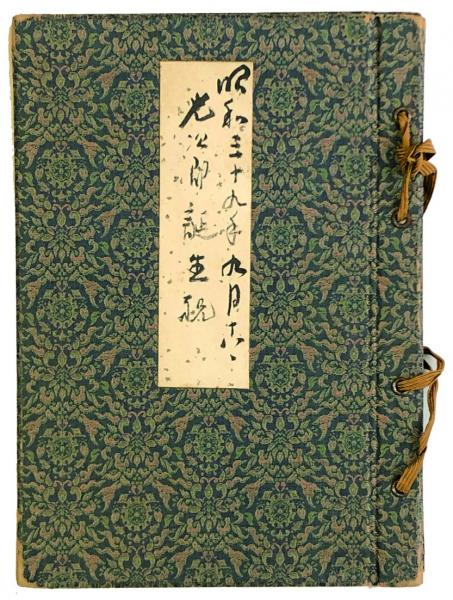 昭和三十九年九月六日
老公御誕生祝